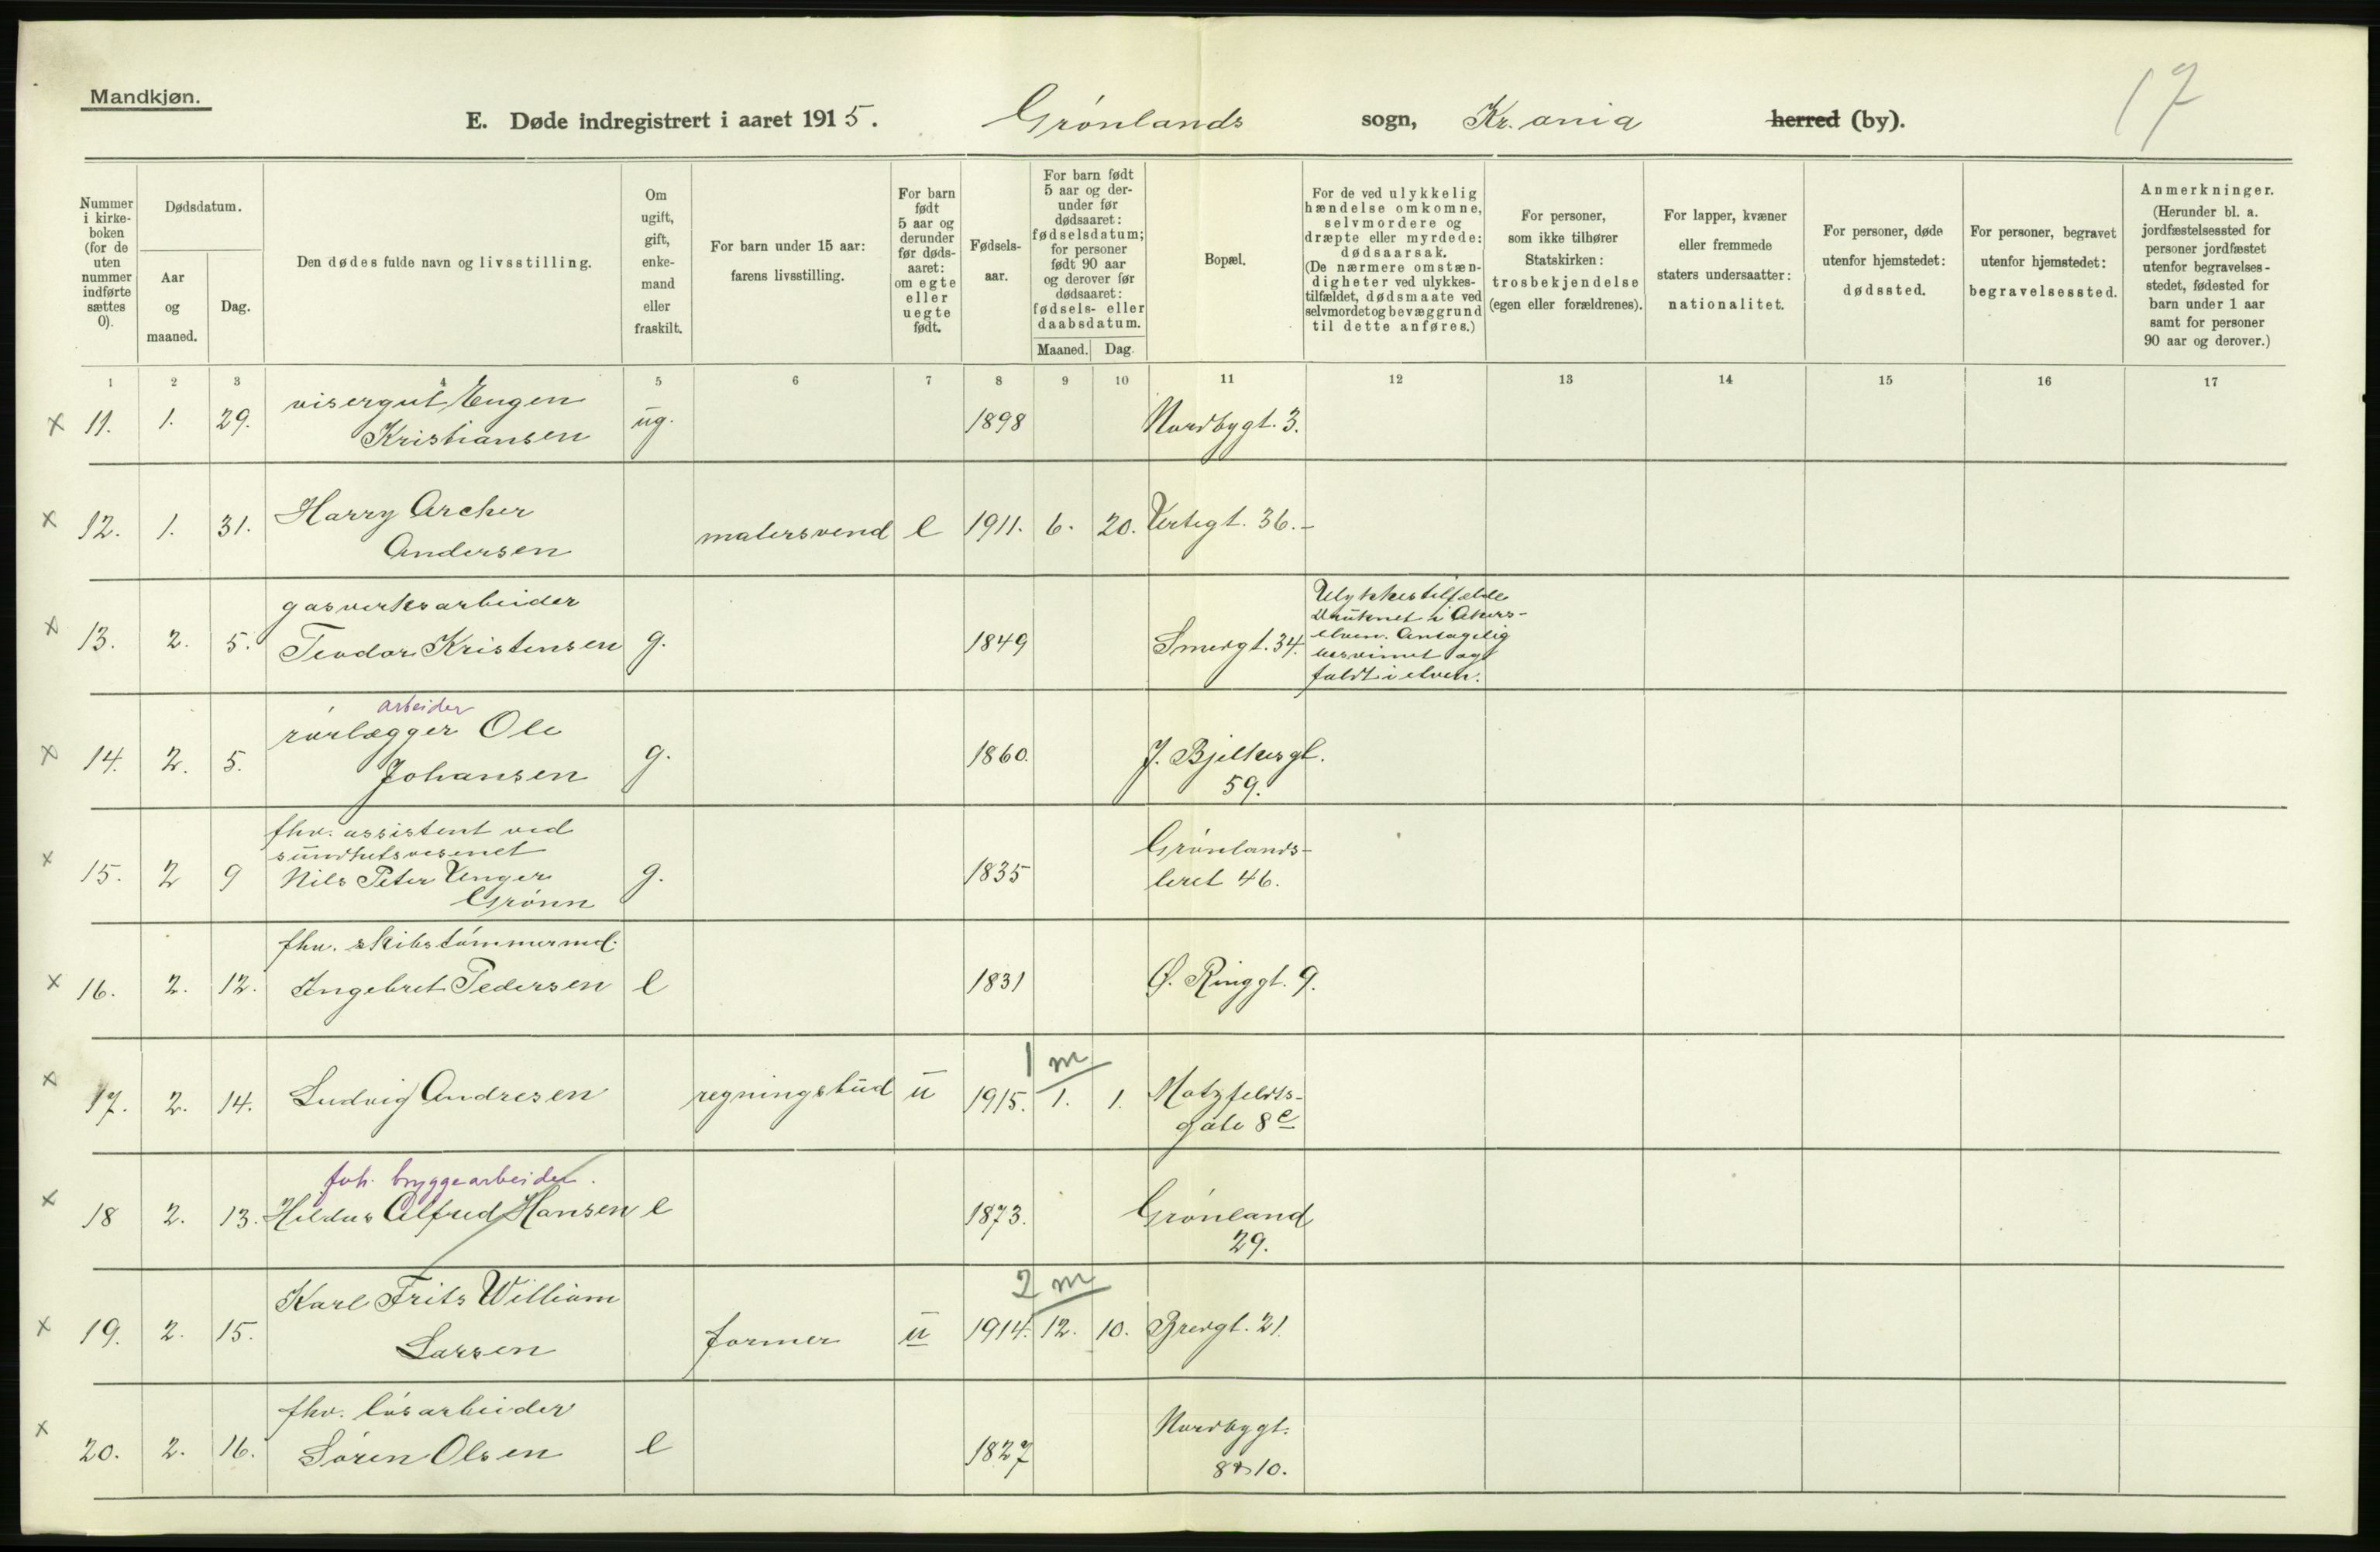 Mandkjøn.
17
E. Døde indregistrert i aaret 1915. Grønlands sogn, Kr.ania herred (by).
Nummer i kirkeboken (for de uten nummer indførte sættes 0).
Dødsdatum.
Aar og maaned.
Dag.
Den dødes fulde navn og livsstilling.
Om ugift, gift, enkemand eller fraskilt.
For barn under 15 aar: farens livsstilling.
For barn født 5 aar og derunder før dødsaaret: om egte eller uegte født.
Fødselsaar.
For barn født 5 aar og derunder før dødsaaret: fødselsdatum; for personer født 90 aar og derover før dødsaaret: fødsels- eller daabsdatum.
Maaned. Dag.
Bopæl.
For de ved ulykkelig hændelse omkomne, selvmordere og dræpte eller myrdede: dødsaarsak. (De nærmere omstændigheter ved ulykkestilfældet, dødsmaate ved selvmordet og bevæggrund til dette anføres.)
For personer, som ikke tilhører Statskirken: trosbekjendelse (egen eller forældrenes).
For lapper, kvæner eller fremmede staters undersaatter: nationalitet.
For personer, døde utenfor hjemstedet: dødssted.
For personer, begravet utenfor hjemstedet: begravelsessted.
Anmerkninger. (Herunder bl. a. jordfæstelsessted for personer jordfæstet utenfor begravelsesstedet, fødested for barn under 1 aar samt for personer 90 aar og derover.)
1 2 3 4 5 6 7 8 9 10 11 12 13 14 15 16 17
visergut Eugen
x 11. 1. 29. Kristiansen ug. 1898 Nordbygt. 3.
Harry Archer
x 12. 1. 31. Andersen malersvend e 1911. 6. 20. Urtegt. 36.-
gasverksarbeider
x 13. 2. 5. Teodor Kristensen g. 1849 Smedgt. 34.
Ulykkestilfælde
Druknet i Akers-
elven. Antagelig
besvimet og
faldt i elven.
arbeider
rørlægger Ole
x 14. 2. 5. Johansen g. 1860. J. Bjelkesgt.
59.
fhv. assistent ved
sundhetsvesenet
x 15. 2 9 Nils Peter Unger g. 1835 Grønlands-
Grønn leret 46.
fhv. skibstømmermd.
x 16. 2. 12. Ingebret Pedersen e 1831 Ø. Ringgt. 9.
1 m
x 17. 2. 14. Ludvig Andresen regningsbud u 1915. 1. 1. Motzfeldts-
gate 8c
fhv. bryggearbeider.
x 18 2. 13. Hildus Alfred Hansen e 1873. Grønland
29.
Karl Frits William 2 m
x 19. 2. 15. Larsen former u 1914. 12. 10. Bredgt. 21.
fhv. løsarbeider
x 20. 2. 16. Søren Olsen e 1827 Nordbygt.
8 & 10.